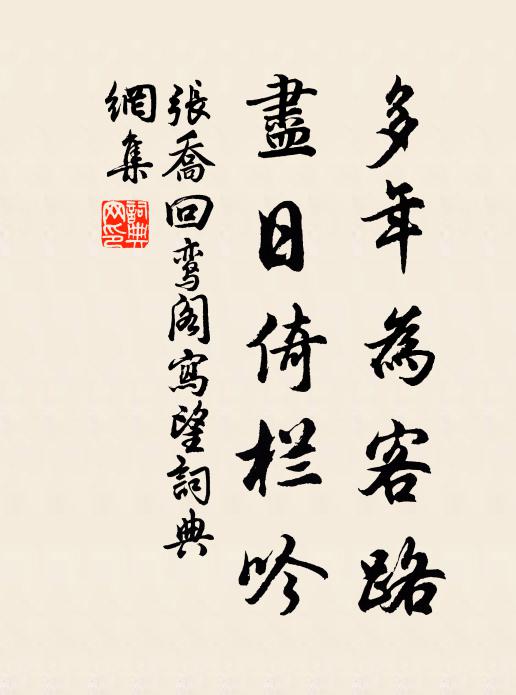 多年為客路
盡日倚栏吟
張喬回鸾阁寫望詞典
網集
詞典
网印